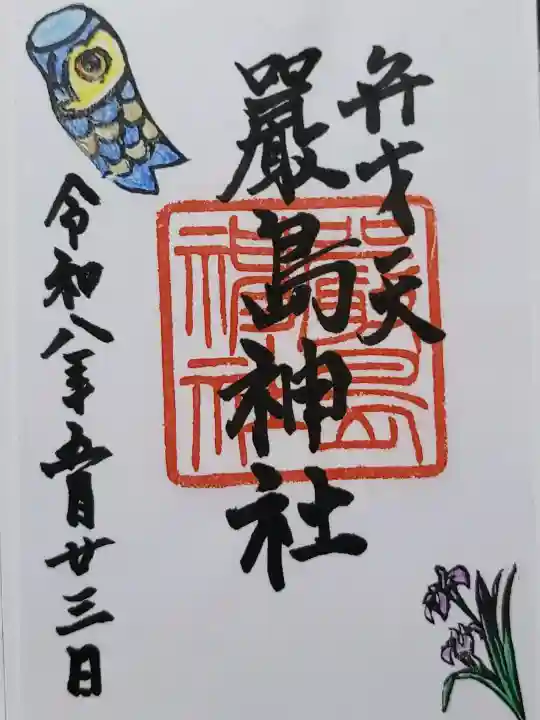 弁才天
嚴島神社
嚴島神社
令和八年五月廿三日